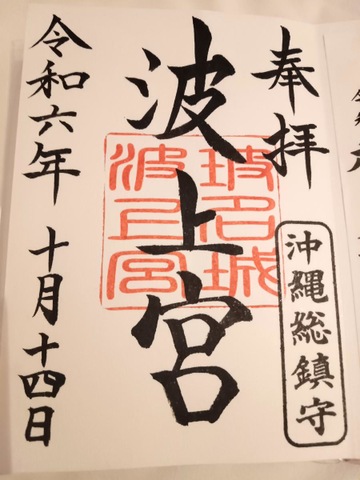 奉拝
沖縄総鎮守
波上宮
玻名城
波上宮
令和六年 十月十四日